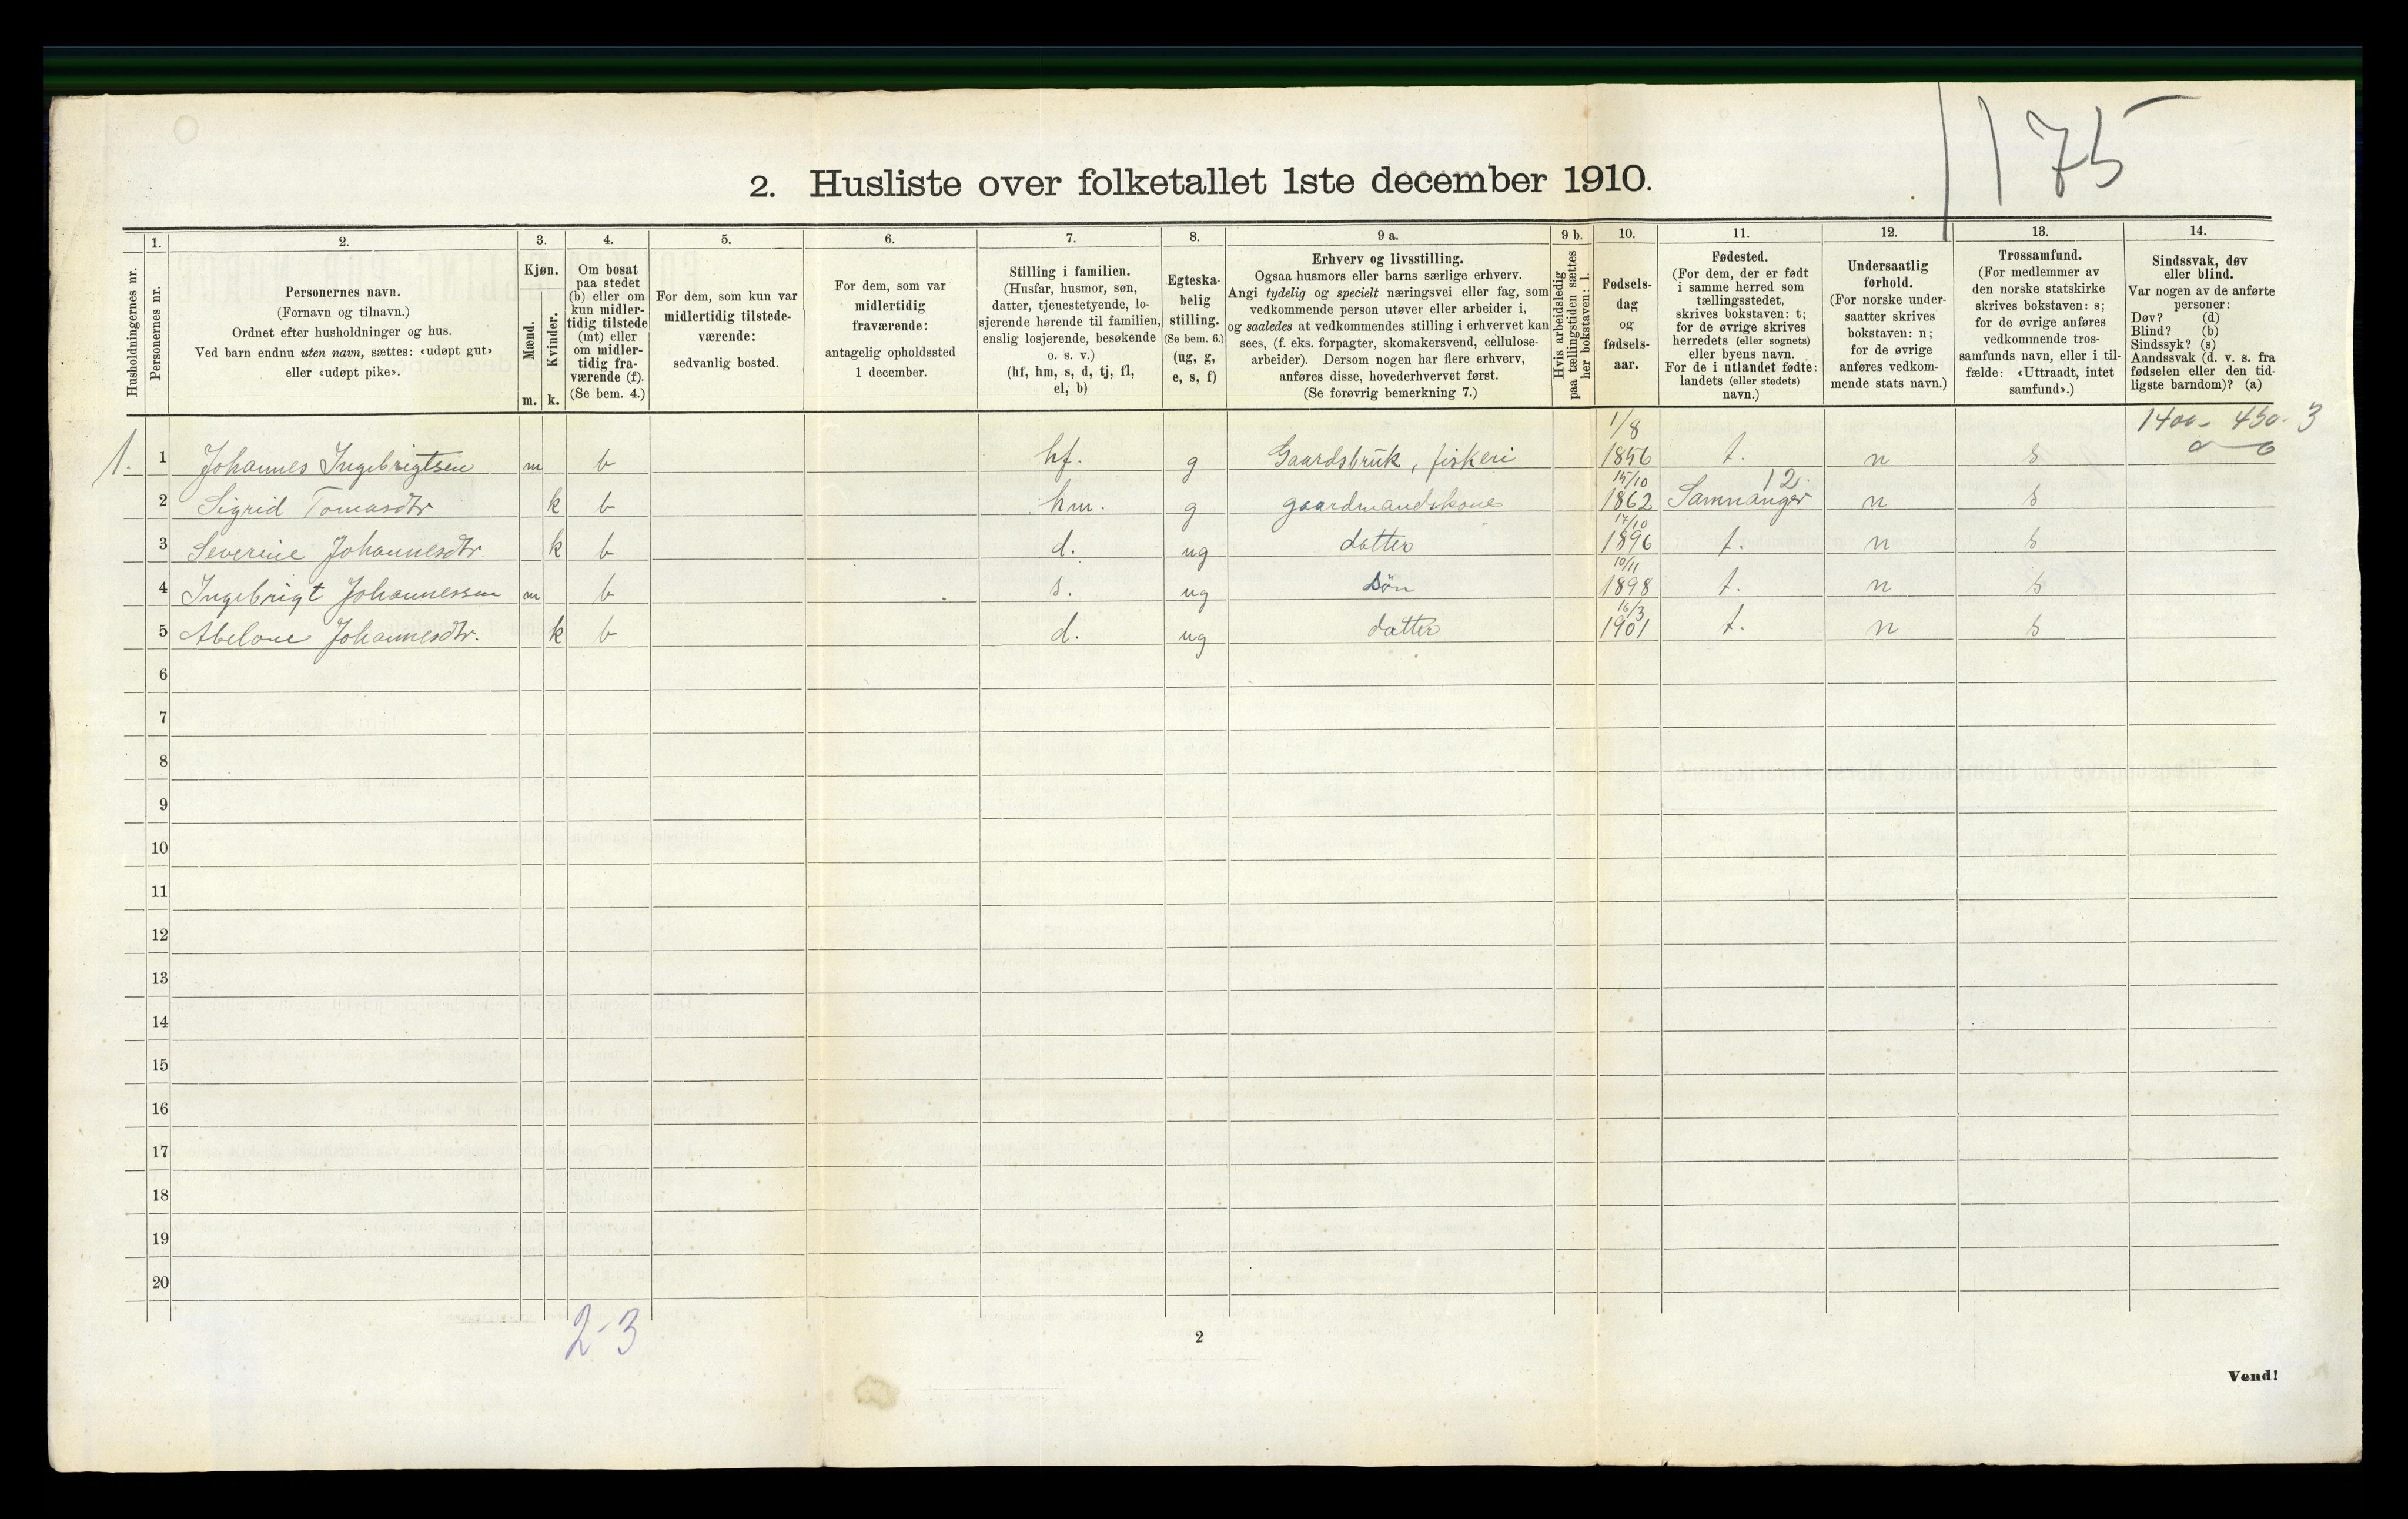 175
2. Husliste over folketallet 1ste december 1910.
Husholdningernes nr.
1. Personernes nr.
2. Personernes navn.
(Fornavn og tilnavn.)
Ordnet efter husholdninger og hus.
Ved barn endnu uten navn, sættes: «udøpt gut»
eller «udøpt pike».
3. Kjøn.
Mænd. m.
Kvinder. k.
4. Om bosat
paa stedet
(b) eller om
kun midler-
tidig tilstede
(mt) eller
om midler-
tidig fra-
værende (f).
(Se bem. 4.)
5. For dem, som kun var
midlertidig tilstede-
værende:
sedvanlig bosted.
6. For dem, som var
midlertidig
fraværende:
antagelig opholdssted
1 december.
7. Stilling i familien.
(Husfar, husmor, søn,
datter, tjenestetyende, lo-
sjerende hørende til familien,
enslig losjerende, besøkende
o. s. v.)
(hf, hm, s, d, tj, fl,
el, b)
8. Egteska-
belig
stilling.
(Se bem. 6.)
(ug, g,
e, s, f)
9 a. Erhverv og livsstilling.
Ogsaa husmors eller barns særlige erhverv.
Angi tydelig og specielt næringsvei eller fag, som
vedkommende person utøver eller arbeider i,
og saaledes at vedkommendes stilling i erhvervet kan
sees, (f. eks. forpagter, skomakersvend, cellulose-
arbeider). Dersom nogen har flere erhverv,
anføres disse, hovederhvervet først.
(Se forøvrig bemerkning 7.)
9 b. Hvis arbeidsledig
paa tællingstiden sættes
her bokstaven: l.
10. Fødsels-
dag
og
fødsels-
aar.
11. Fødested.
(For dem, der er født
i samme herred som
tællingsstedet,
skrives bokstaven: t;
for de øvrige skrives
herredets (eller sognets)
eller byens navn.
For de i utlandet fødte:
landets (eller stedets)
navn.)
12. Undersaatlig
forhold.
(For norske under-
saatter skrives
bokstaven: n;
for de øvrige
anføres vedkom-
mende stats navn.)
13. Trossamfund.
(For medlemmer av
den norske statskirke
skrives bokstaven: s;
for de øvrige anføres
vedkommende tros-
samfunds navn, eller i til-
fælde: «Uttraadt, intet
samfund».)
14. Sindssvak, døv
eller blind.
Var nogen av de anførte
personer:
Døv? (d)
Blind? (b)
Sindssyk? (s)
Aandssvak (d. v. s. fra
fødselen eller den tid-
ligste barndom)? (a)
1400 - 450 - 3
0 0
1. 1 Johannes Ingebrigtsen m b hf. g Gaardsbruk, fiskeri 1/8 1856 t. n s
2 Sigrid Tomasdtr k b hm. g gaardmandskone 15/10 1862 Samnanger 12. n s
3 Severine Johannesdtr. k b d. ug datter 17/10 1896 t. n s
4 Ingebrigt Johannessen m b s. ug søn 10/11 1898 t. n s
5 Abelone Johannesdtr. k b d. ug datter 16/3 1901 t. n s
6
7
8
9
10
11
12
13
14
15
16
17
18
19
20
2-3
2
Vend!